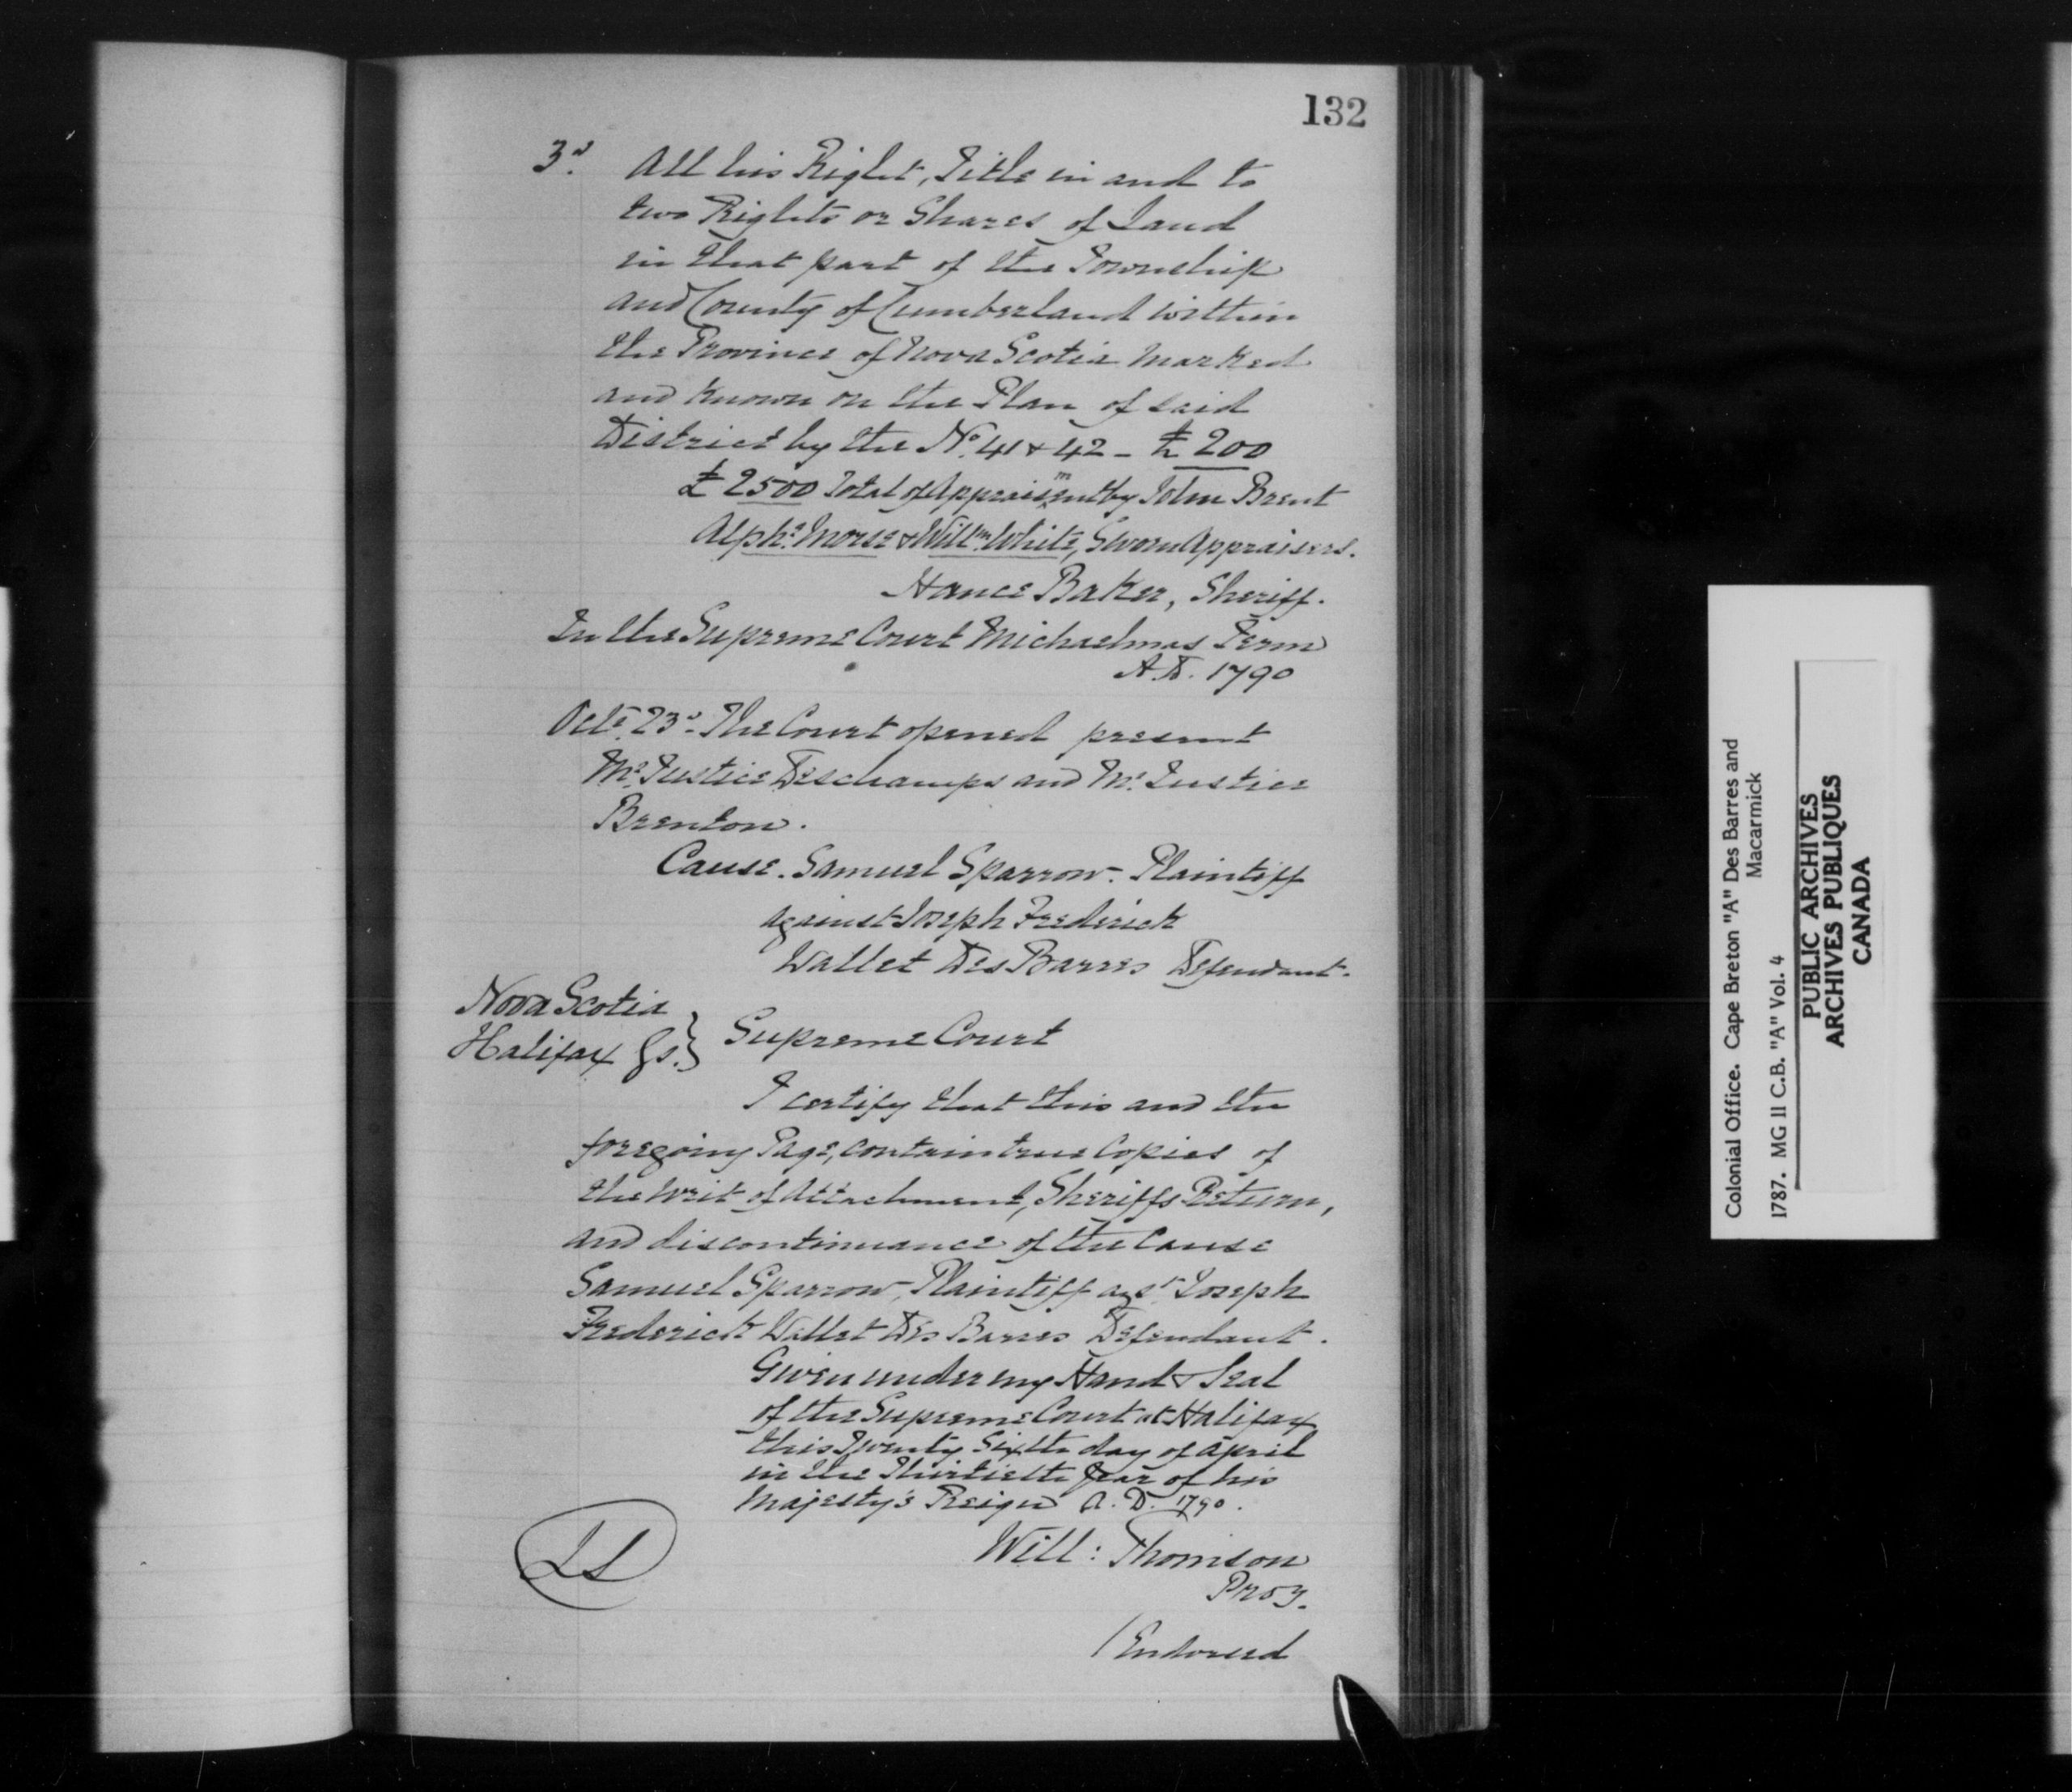 132
3d. All his Right, Title in and to
two Rights or Shares of Land
in that part of the Township
and County of Cumberland within
the Province of Nova Scotia marked
and known on the Plan of said
District by the No. 41 & 42 - £200
£2500 Total of Appraisment by John Brent
Alphs. Morse & Willm. White, Sworn Appraisers.
Hance Baker, Sheriff.
In the Supreme Court Michaelmas Term
A.D. 1790
Octr. 23d. The Court opened present
Mr. Justice Deschamps and Mr. Justice
Brenton.
Cause. Samuel Sparrow. Plaintiff
against Joseph Frederick
Wallet Des Barres Defendant.
Nova Scotia
Halifax Ss. } Supreme Court
I certify that this and the
foregoing Page, contain true Copies of
the Writ of Attachment, Sheriffs Return,
and discontinuance of the Cause
Samuel Sparrow, Plaintiff agst. Joseph
Frederick Wallet Des Barres Defendant.
Given under my Hand & Seal
of the Supreme Court at Halifax
this Twenty Sixth day of April
in the Thirtieth Year of his
Majesty's Reign A.D. 1790.
LS
Will: Thomson
Proy.
/Endorsed
Colonial Office. Cape Breton "A" Des Barres and
Macarmick
1787. MG 11 C.B. "A" Vol. 4
PUBLIC ARCHIVES
ARCHIVES PUBLIQUES
CANADA